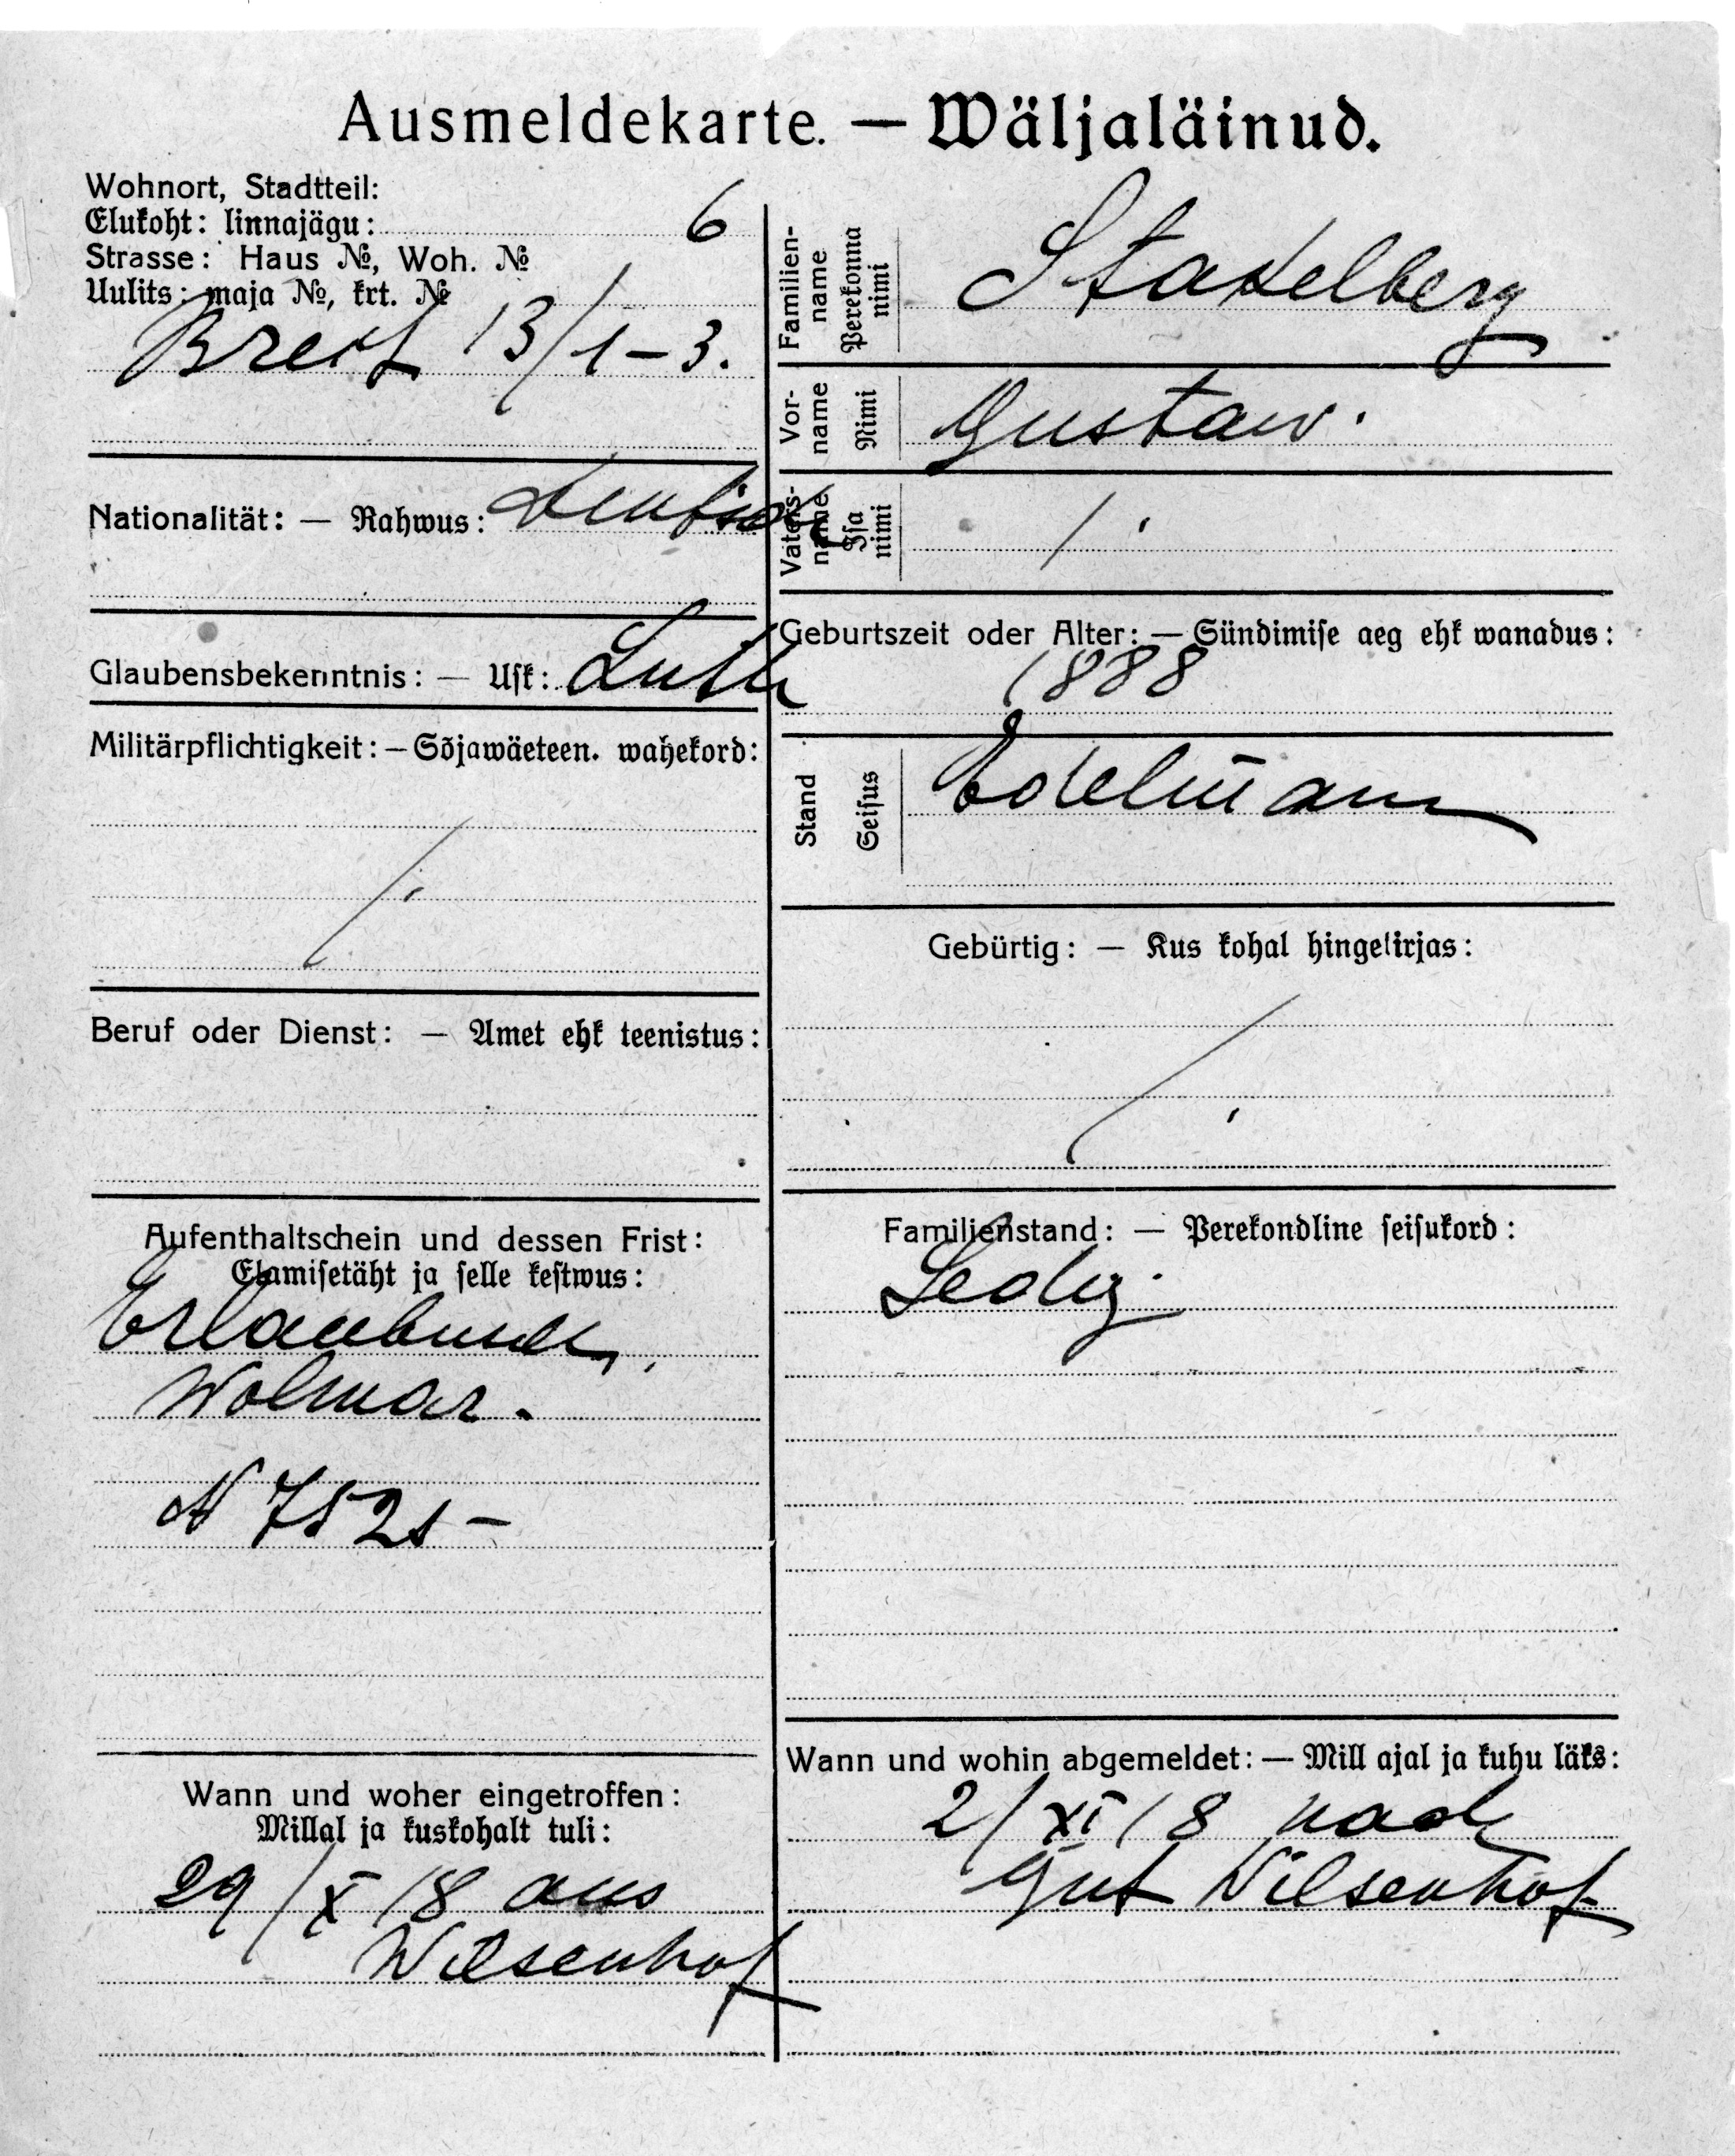 Ausmeldekarte. — Wäljaläinud.
Wohnort, Stadtteil:
Elukoht: linnajägu: 6
Strasse: Haus №, Woh. №
Uulits: maja №, krt. №
Breit 13/1-3.
Nationalität: — Rahwus: Deutsch
Glaubensbekenntnis: — Usk: Luth
Militärpflichtigkeit: — Sõjawäeteen. wahekord:
/.
Beruf oder Dienst: — Amet ehk teenistus:
Aufenthaltschein und dessen Frist:
Elamisetäht ja selle kestwus:
Wolmar.
N 7521 -
Wann und woher eingetroffen:
Millal ja kuskohalt tuli:
29/X 18 aus
Wilsenhof
Familien-
name
Perekonna
nimi
Stakelberg
Vor-
name
Nimi
Gustaw.
Vaters-
name
Isa
nimi
/.
Geburtszeit oder Alter: — Sündimise aeg ehk wanadus:
1888
Stand
Seisus
Edelmann
Gebürtig: — Kus kohal hingekirjas:
/.
Familienstand: — Perekondline seisukord:
Ledig.
Wann und wohin abgemeldet: — Mill ajal ja kuhu läks:
2/XI 18 nach
Gut Wilsenhof